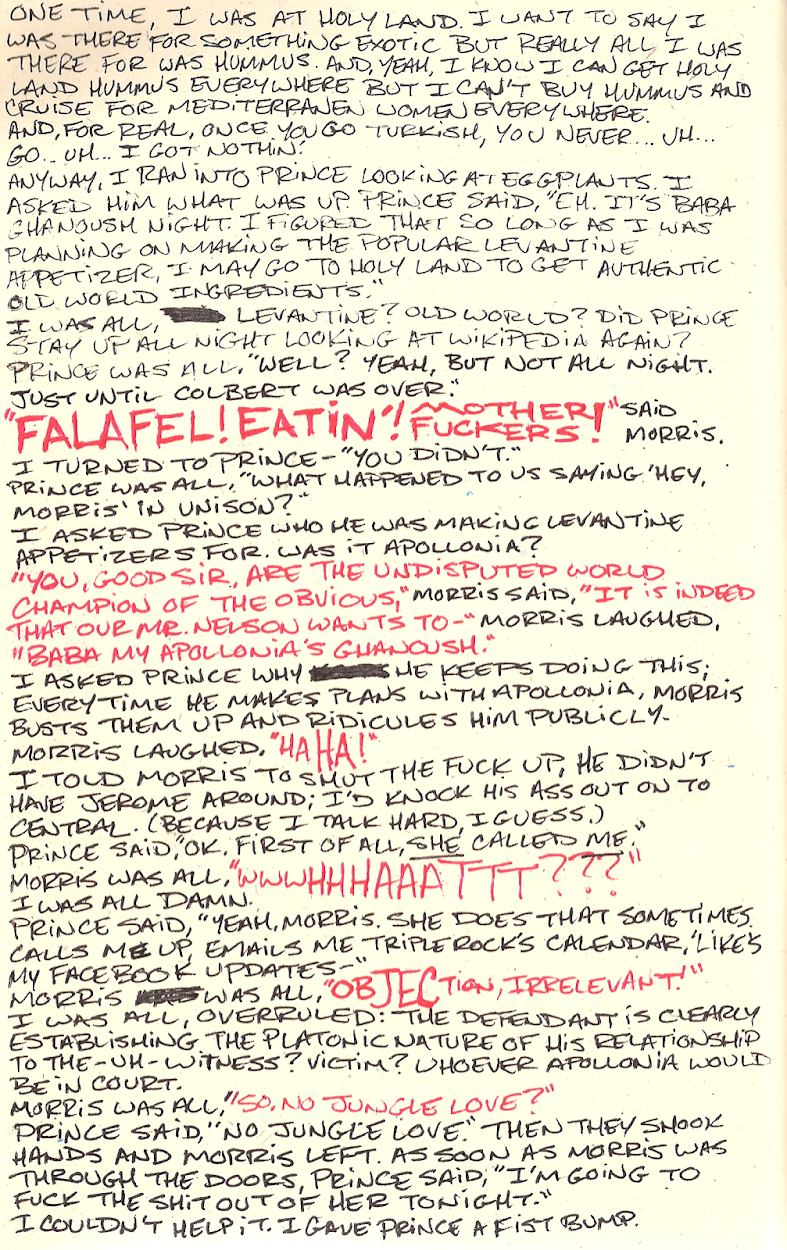 ONE TIME, I WAS AT HOLY LAND. I WANT TO SAY I
WAS THERE FOR SOMETHING EXOTIC BUT REALLY ALL I WAS
THERE FOR WAS HUMMUS. AND, YEAH, I KNOW I CAN GET HOLY
LAND HUMMUS EVERYWHERE BUT I CAN'T BUY HUMMUS AND
CRUISE FOR MEDITERRANEN WOMEN EVERYWHERE.
AND, FOR REAL, ONCE YOU GO TURKISH, YOU NEVER... UH...
GO... UH... I GOT NOTHIN'.
ANYWAY, I RAN INTO PRINCE LOOKING AT EGGPLANTS. I
ASKED HIM WHAT WAS UP. PRINCE SAID, "EH. IT'S BABA
GHANOUSH NIGHT. I FIGURED THAT SO LONG AS I WAS
PLANNING ON MAKING THE POPULAR LEVANTINE
APPETIZER, I MAY GO TO HOLY LAND TO GET AUTHENTIC
OLD WORLD INGREDIENTS."
I WAS ALL, LEVANTINE? OLD WORLD? DID PRINCE
STAY UP ALL NIGHT LOOKING AT WIKIPEDIA AGAIN?
PRINCE WAS ALL, "WELL? YEAH, BUT NOT ALL NIGHT.
JUST UNTIL COLBERT WAS OVER."
"FALAFEL! EATIN'! MOTHER FUCKERS!" SAID
MORRIS.
I TURNED TO PRINCE - "YOU DIDN'T."
PRINCE WAS ALL, "WHAT HAPPENED TO US SAYING 'HEY,
MORRIS' IN UNISON?"
I ASKED PRINCE WHO HE WAS MAKING LEVANTINE
APPETIZERS FOR. WAS IT APOLLONIA?
"YOU, GOOD SIR, ARE THE UNDISPUTED WORLD
CHAMPION OF THE OBVIOUS," MORRIS SAID, "IT IS INDEED
THAT OUR MR. NELSON WANTS TO -" MORRIS LAUGHED,
"BABA MY APOLLONIA'S GHANOUSH."
I ASKED PRINCE WHY HE KEEPS DOING THIS;
EVERY TIME HE MAKES PLANS WITH APOLLONIA, MORRIS
BUSTS THEM UP AND RIDICULES HIM PUBLICLY.
MORRIS LAUGHED. "HA HA!"
I TOLD MORRIS TO SHUT THE FUCK UP, HE DIDN'T
HAVE JEROME AROUND; I'D KNOCK HIS ASS OUT ON TO
CENTRAL. (BECAUSE I TALK HARD, I GUESS.)
PRINCE SAID, "OK. FIRST OF ALL, SHE CALLED ME."
MORRIS WAS ALL, "WWWHHHAAATTT???"
I WAS ALL DAMN.
PRINCE SAID, "YEAH, MORRIS. SHE DOES THAT SOMETIMES.
CALLS ME UP, EMAILS ME TRIPLE ROCK'S CALENDAR, 'LIKE'S
MY FACEBOOK UPDATES -"
MORRIS WAS ALL, "OBJECTION, IRRELEVANT!"
I WAS ALL, OVERRULED: THE DEFENDANT IS CLEARLY
ESTABLISHING THE PLATONIC NATURE OF HIS RELATIONSHIP
TO THE - UH - WITNESS? VICTIM? WHOEVER APOLLONIA WOULD
BE IN COURT.
MORRIS WAS ALL, "SO, NO JUNGLE LOVE?"
PRINCE SAID, "NO JUNGLE LOVE." THEN THEY SHOOK
HANDS AND MORRIS LEFT. AS SOON AS MORRIS WAS
THROUGH THE DOORS, PRINCE SAID, "I'M GOING TO
FUCK THE SHIT OUT OF HER TONIGHT."
I COULDN'T HELP IT. I GAVE PRINCE A FIST BUMP.